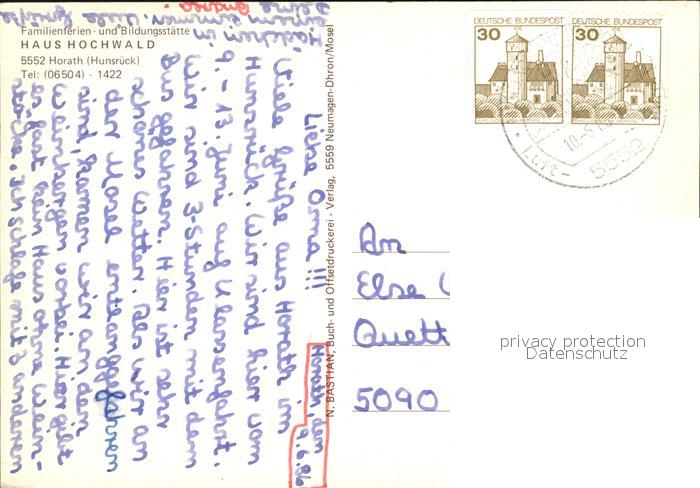 Familienferien - und Bildungsstätte
HAUS HOCHWALD
5552 Horath (Hunsrück)
Tel: (06504) - 1422
N. BASTIAN, Buch- und Offsetdruckerei - Verlag, 5559 Neumagen-Dhron/Mosel
DEUTSCHE BUNDESPOST
30
DEUTSCHE BUNDESPOST
30
Luft-
5552
Horath, den
9.6.86
Liebe Oma !!!
Viele Grüße aus Horath im
Hunsrück. Wir sind hier vom
9. - 13. Juni auf Klassenfahrt.
Wir sind 3-Stunden mit dem
Bus gefahren. Hier ist sehr
schönes Wetter. Als wir an
der Mosel entlanggefahren
sind, kamen wir an den
Weinbergen vorbei. Hier gibt
es fast kein Haus ohne Wein-
stöcke. Ich schlafe mit 3 anderen
Mädchen in
einem Zimmer. Viele
Grüße
Deine
Andrea
An
Else
Quett
5090
privacy protection
Datenschutz